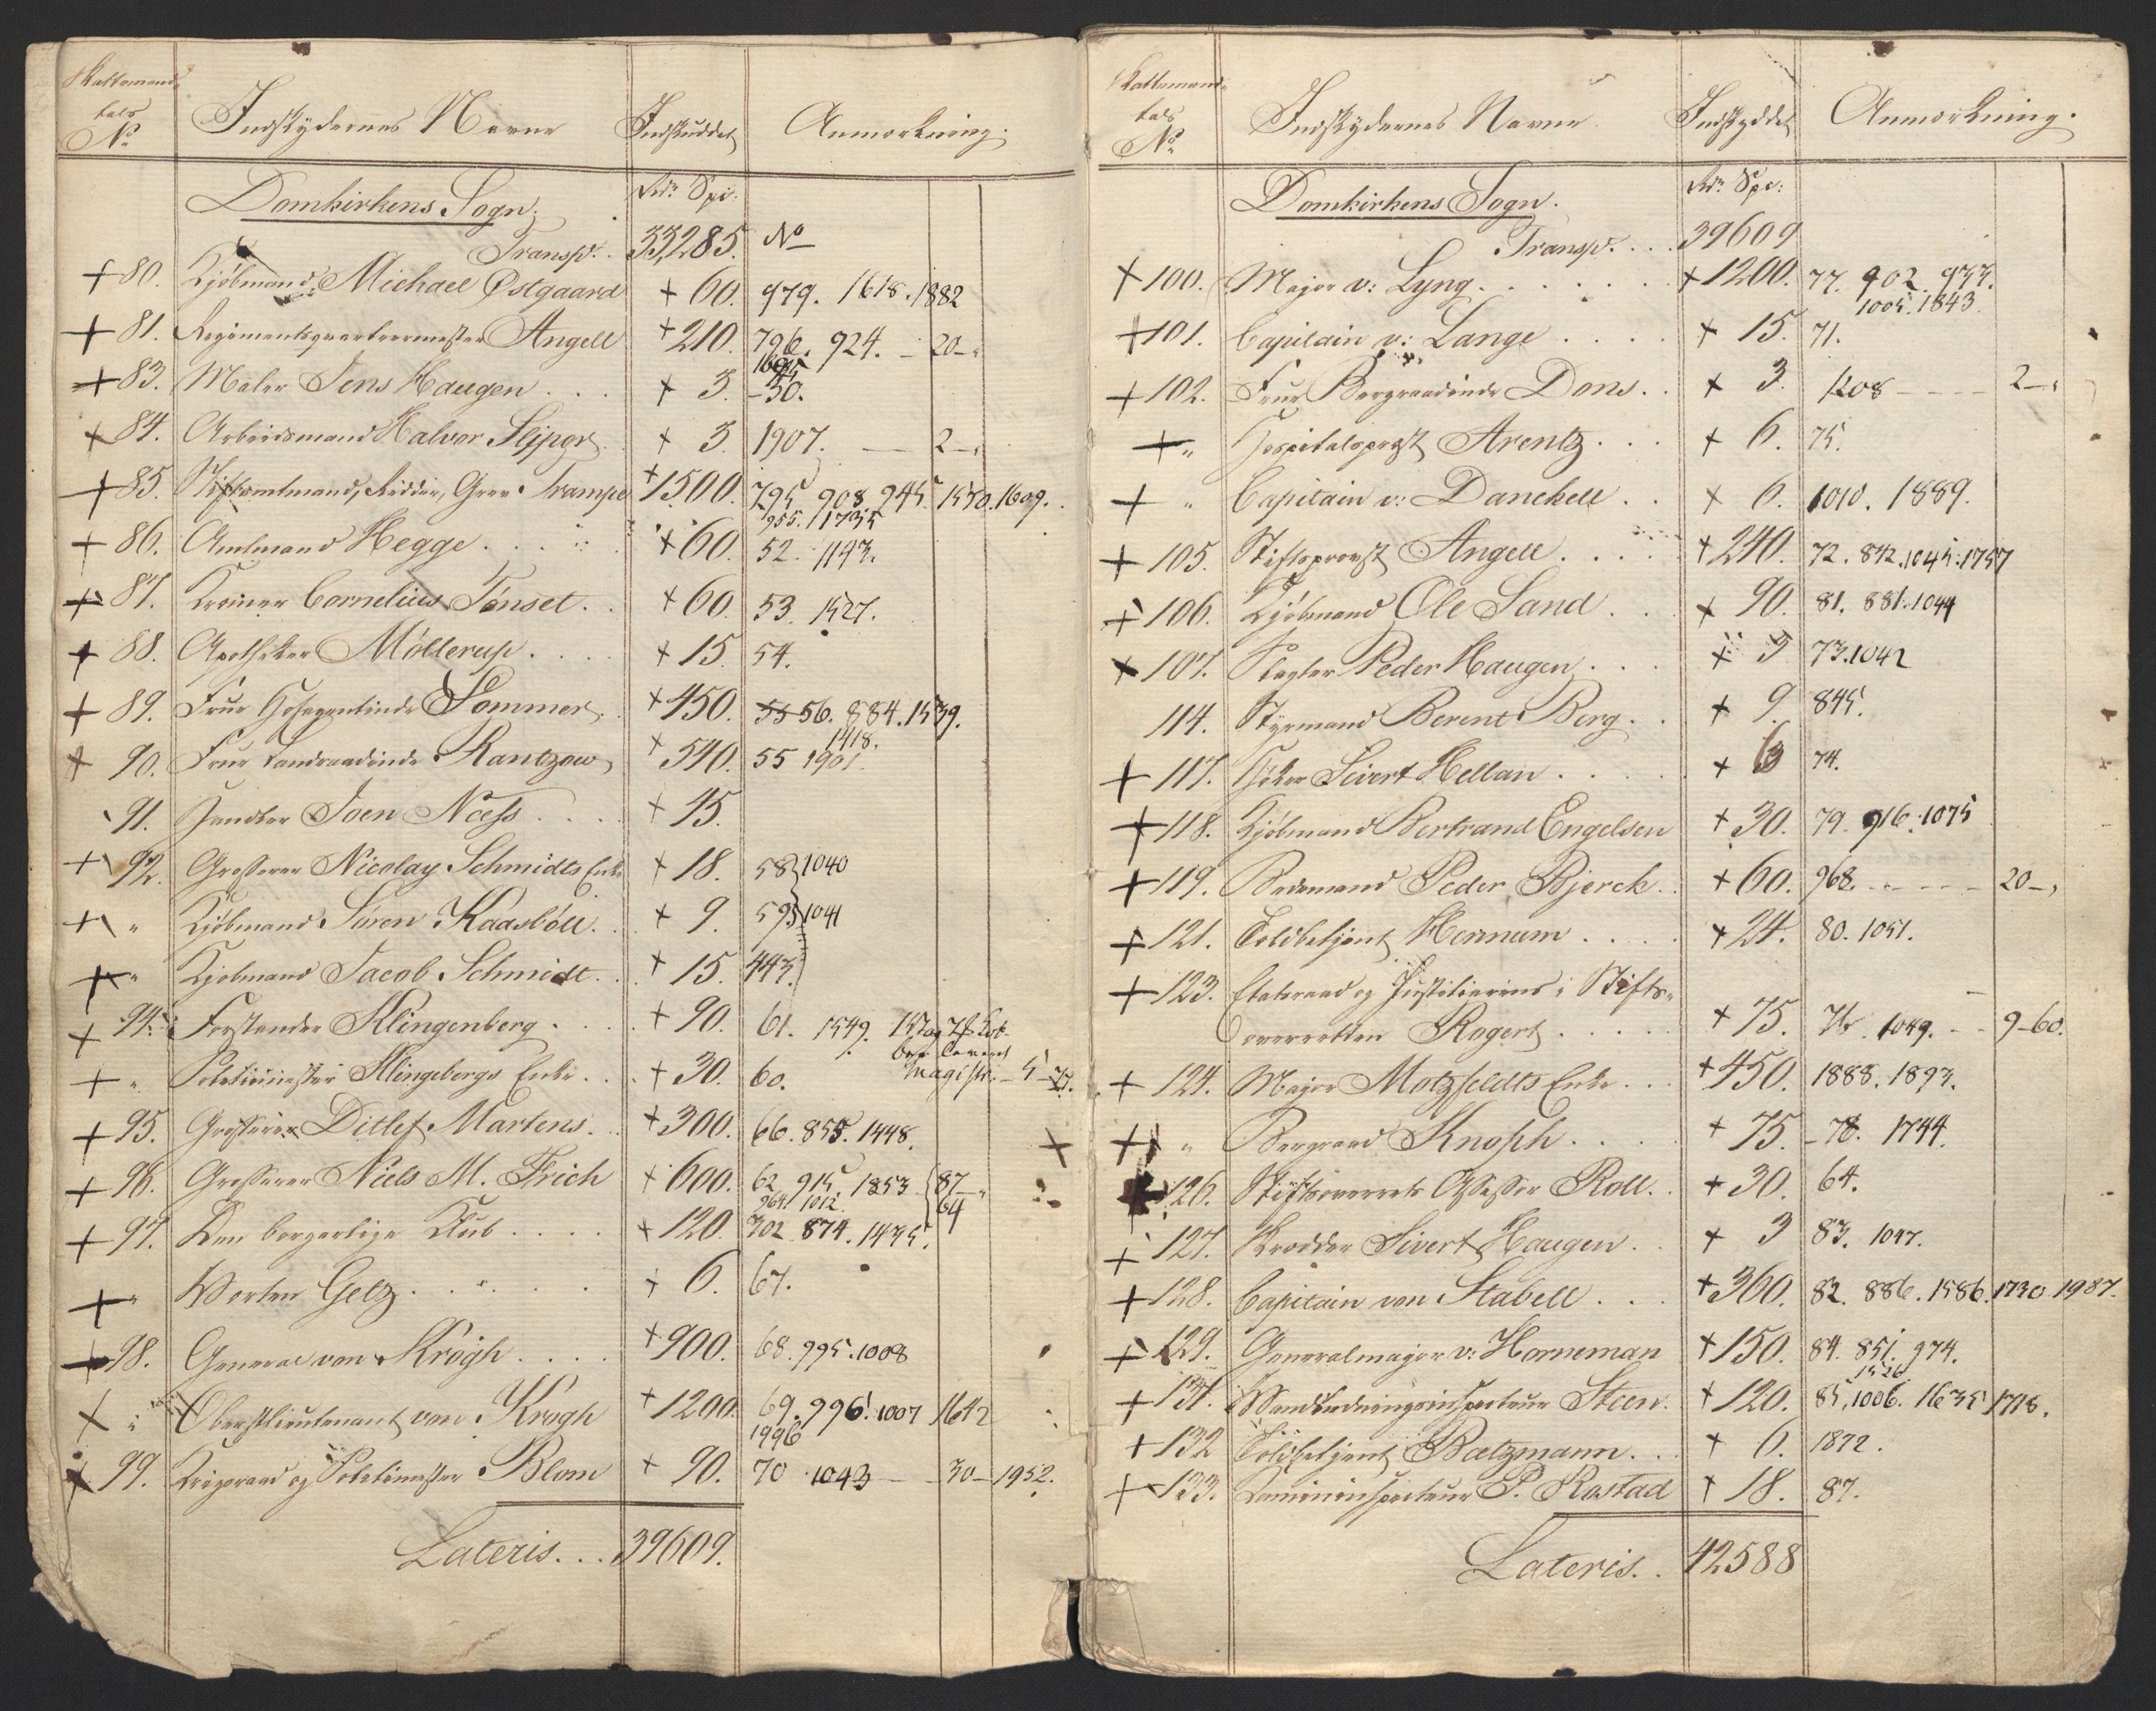 Skattemand-
tals
No
Indskydernes Navne
Indskuddet
Anmærkning.
Domkirkens Sogn.
Rdr. Spc:
Transp. . 33,285. No
+ 80. Kjöbmand Michael Østgaard + 60. 979. 1618. 1882
+ 81. Regimentsqvarteermester Angell + 210. 796. 924. - 20 -
+ 83. Maler Jens Haugen . . . + 3. - 50.
+ 84. Arbeidsmand Halvor + 3. 1907. - 2 -
+ 85. Stiftamtmand, Ridder, Grev Trampe + 1500. 795 908. 945. 1550. 1609.
955. 11735
+ 86. Amtmand Hegge . . . + 60. 52. 1143.
+ 87. Kræmer Cornelius Tönset . . + 60. 53. 1527.
+ 88. Apotheker Möllerup . . . . + 15. 54.
+ 89. Frue Hofagentinde Sommer + 450. 55 56. 884. 1539.
1418.
+ 90. Frue Landraadinde Rantzow + 540. 55 1961.
91. Handler Joen Næss . . . . + 15.
+ 92. Grosserer Nicolay Schmidts Enke + 18. 58 } 1040
+ " Kjöbmand Sören Kaasböll . . + 9. 59 } 1041
+ " Kjöbmand Jacob Schmidt . . + 15. 443.
+ 94. Forstander Klingenberg . . . + 90. 61. 1549.
+ " Politiemester Klingebergs Enke . . + 30. 60.
+ 95. Grosserer Ditlef Martens . . + 300. 66. 855. 1448.
+ 96. Grosserer Niels M. Frich + 600. 62 915 1853 { 87 - "
964. 1012. 64
+ 97. Den borgerlige Klub . . . . + 120. 302 874. 1435.
+ " Morten Geltz . . . . . + 6. 67.
+ 98. General von Krogh . . . . + 900. 68. 995. 1008
+ " Oberstlieutenant von Krogh + 1200. 69. 996. 1007 1642
1996
+ 99. Krigsraad og Politiemester Blom + 90. 70 . 1043 - - 30 - 1952.
Lateris. . . 39609.
Skattemand-
tals
No
Indskydernes Navne
Indskuddet
Anmærkning.
Domkirkens Sogn.
Rdr. Spc:
Transp. . . 39609
+ 100. Major v: Lyng . . . . . . + 1200. 77. 902. 933.
1005. 1843.
+ 101. Capitain v: Lange . . . . + 15. 71.
+ 102. Frue Bergraadinde Dons . . + 3. 1208 - - - - 2 -
+ " Hospitalsprest Arentz . . . + 6. 75.
+ " Capitain v: Danckell . . + 6. 1010. 1889.
+ 105. Stiftsprovst Angell . . . . + 240. 72. 842. 1045. 1757
+ 106. Kjöbmand Ole Sand . . . + 90. 81. 881. 1044
+ 107. Slagter Peder Haugen . . . + 3 73. 1042
114. Styrmand Berent Berg . . + 9. 845.
+ 117. Höker Sivert Hellan . . . . + 6 74.
+ 118. Kjöbmand Bertrand Engelsen + 30. 79. 916. 1075
+ 119. Bedemand Peder Bjerck . . + 60. 968. - - - - 20 -
+ 121. Toldbetjent Hernum . . . . + 24. 80. 1051.
+ 123. Etatsraad og Justitiarius i Stifts-
overretten Rogert . . . . . + 75. 76. 1049. - - 9 - 60.
+ 124. Major Motzfeldts Enke . . + 450. 1888. 1893.
+ " Bergraad Knoph . . . . + 75. - 78. 1744.
+ 126. Stiftsoverrets Assessor Roll . + 30. 64.
+ 127. Skrædder Sivert Haugen . . + 3 83. 1047.
+ 128. Capitain von Stabell . . . + 360. 82. 886. 1586. 1730 1987.
+ 129. Generalmajor v: Horneman + 150. 84. 851. 974.
1526
+ 131. Steen . + 120. 85. 1006. 1635 1718.
+ 132 Toldbetjent Baltzmann . . . + 6. 1872.
+ 133. P. Rostad + 18. 87.
Lateris. . 42588